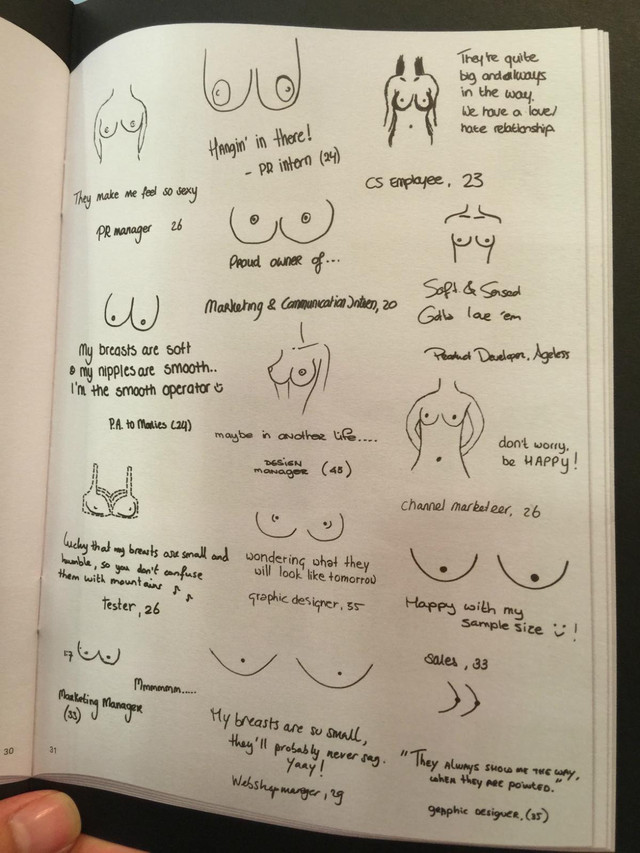 They make me feel so sexy
PR manager 26
My breasts are soft
& my nipples are smooth..
I'm the smooth operator
P.A. to Marlies (24)
Lucky that my breasts are small and
humble, so you don't confuse
them with mountains
Tester, 26
Mmmmmm.....
Marketing Manager
(33)
Hangin' in there!
- PR intern (24)
Proud owner of...
Marketing & Communication Intern, 20
maybe in another life....
DESIGN
manager (45)
wondering what they
will look like tomorrow
graphic designer, 35
My breasts are so small,
they'll probably never sag.
Yaay!
Webshop manager, 29
They're quite
big and always
in the way.
We have a love/
hate relationship
CS Employee, 23
Soft &
love 'em
Product Developer, Ageless
don't worry,
be HAPPY!
channel marketeer, 26
Happy with my
sample size !
Sales, 33
"They always show me the way,
when they are pointed."
graphic designer, (25)
30
31